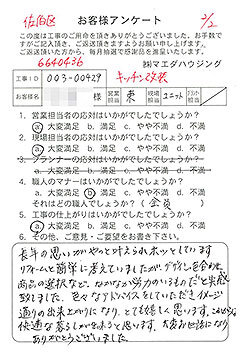 佐伯区 お客様アンケート 7/2
この度は工事のご用命を頂きありがとうございました。お手数で
すがご記入頂き、ご返送頂きますようお願い申し上げます。
ご返送頂いた方から、毎月抽選で感謝品を進呈いたします。
6640436 ㈱マエダハウジング
工事ID 003-00429 キッチン改装
お客様名 様 営業担当 東 現場担当 ユニット プランナー
1. 営業担当者の応対はいかがでしたでしょうか?
a 大変満足 b. 満足 c. やや不満 d. 不満
2. 現場担当者の応対はいかがでしたでしょうか?
a 大変満足 b. 満足 c. やや不満 d. 不満
3. プランナーの応対はいかがでしたでしょうか?
a. 大変満足 b. 満足 c. やや不満 d. 不満
4. 職人のマナーはいかがでしたでしょうか?
a. 大変満足 b 満足 c. やや不満 d. 不満
それはどの職人でしょうか?( 全員 )
5. 工事の仕上がりはいかがでしたでしょうか?
a 大変満足 b. 満足 c. やや不満 d. 不満
6. その他、ご意見・ご要望をお書き下さい。
長年の思いがやっと叶えられホッとしています
リフォームと簡単に考えていましたが、デザインを合わせ、
商品の選択など、なかなか労力のいるものだと実感
致しました。色々なアドバイスをしていただきイメージ
通りの出来上がりになり、とても嬉しく思います。これから
快適な暮らしが出来ると思います。大変お世話になり
ありがとうございました。